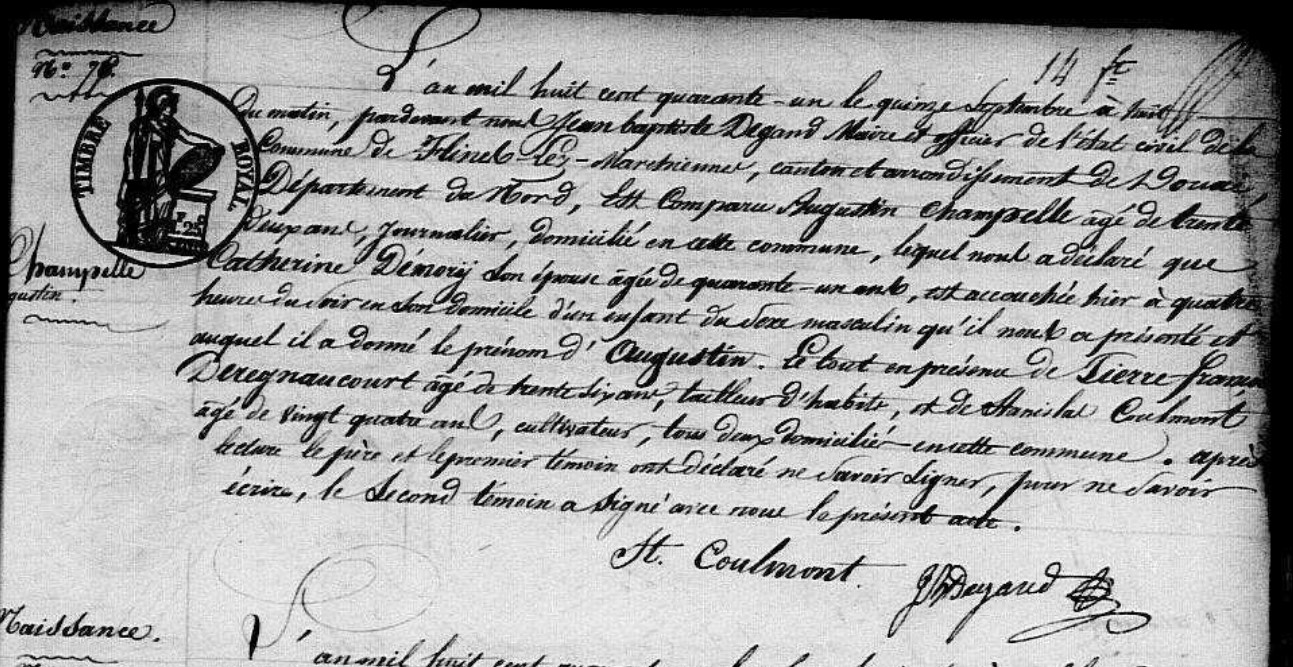 Naissance
N° 78.
14 fc
L'an mil huit cent quarante-un le quinze Septembre à huit
du matin, pardevant nous Jean baptiste Degand Maire et officier de l'état civil de la
Commune de Flines-Lez-Marchiennes, canton et arrondissement de Douai,
Département du Nord, Est Comparu Augustin Champelle âgé de trente
deux ans, Journalier, domicilié en cette commune, lequel nous a déclaré que
Catherine Démory son épouse âgée de quarante-un ans, est accouchée hier à quatre
heures du soir en son domicile d'un enfant du sexe masculin qu'il nous a présenté et
auquel il a donné le prénom d'Augustin. Le tout en présence de Pierre françois
Deregnaucourt âgé de trente six ans, tailleur d'habits, et de Stanislas Coulmont
âgé de vingt quatre ans, cultivateur, tous deux domiciliés en cette commune. après
lecture le père et le premier témoin ont déclaré ne savoir signer, pour ne savoir
écrire, le second témoin a signé avec nous le présent acte.
TIMBRE ROYAL
Champelle
gustin.
St. Coulmont.
JBDegand
Naissance.
L'an mil huit cent